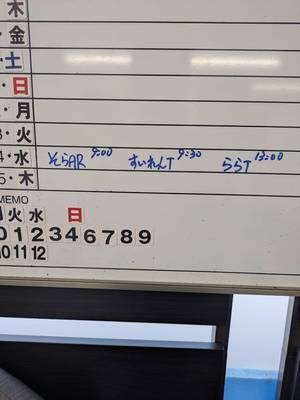 木
・金
・土
・日
・月
・火
4・水 そらAR 9:00 すいれんT 9:30 ららT 13:00
5・木
MEMO
火 水 日
012346789
101112